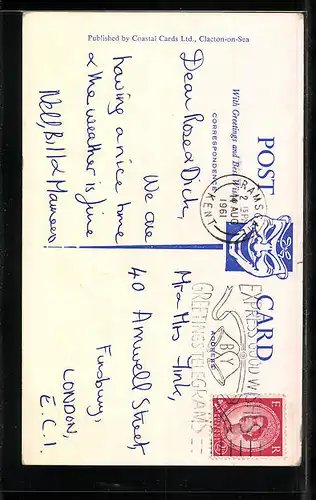 Published by Coastal Cards Ltd., Clacton-on-Sea
With Greetings and Best Wishes
POST CARD
CORRESPONDENCE
ADDRESS
RAMSGATE
2 15 PM
14 AUG
1961
KENT
EXPRESS YOUR WISHES
BY
GREETINGS TELEGRAMS
E R
Dear Rose & Dick,
We are
having a nice time
& the weather is fine
Nell, Bill & Maureen
Mr & Mrs Fink,
40 Amwell Street,
Finsbury,
LONDON,
E.C.1.